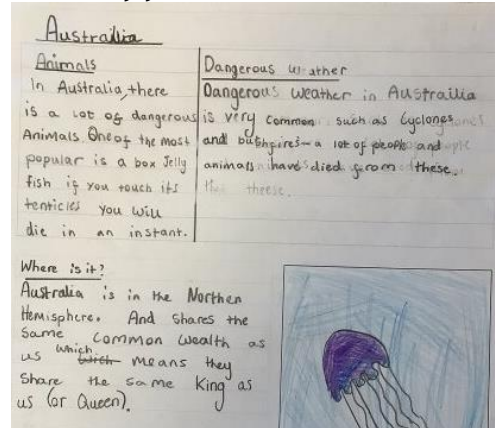 Austrailia
Animals
In Australia, there
is a lot of dangerous
Animals. One of the most
popular is a box Jelly
fish if you touch its
tenticles you will
die in an instant.
Dangerous weather
Dangerous weather in Austrailia
is very common such as Cyclones
and bushfires- a lot of people and
animals have died from these.
Where is it?
Australia is in the Northen
Hemisphere. And shares the
same common wealth as
us which means they
share the same King as
us (or Queen).